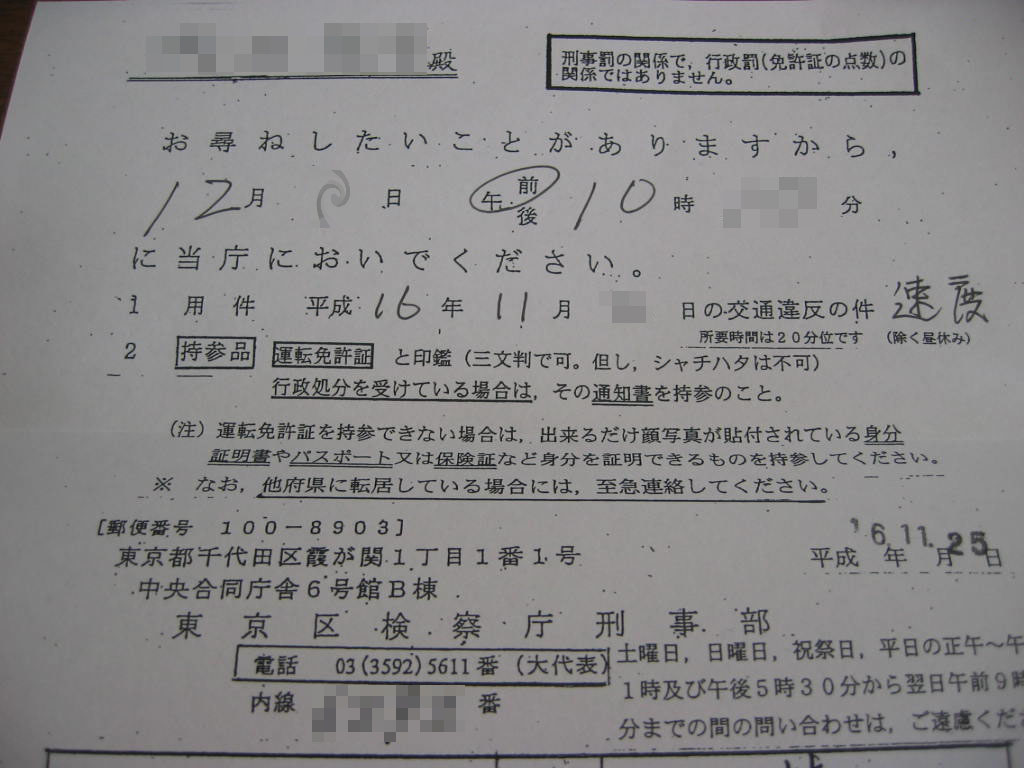 殿
刑事罰の関係で,行政罰(免許証の点数)の
関係ではありません。
お尋ねしたいことがありますから,
12月 日 午前後 10時 分
に当庁においでください。
1 用件 平成16年11月 日の交通違反の件 速度
所要時間は20分位です (除く昼休み)
2 持参品 運転免許証 と印鑑(三文判で可。但し,シャチハタは不可)
行政処分を受けている場合は,その通知書を持参のこと。
(注)運転免許証を持参できない場合は,出来るだけ顔写真が貼付されている身分
証明書やパスポート又は保険証など身分を証明できるものを持参してください。
※ なお,他府県に転居している場合には,至急連絡してください。
[郵便番号 100-8903]
東京都千代田区霞が関1丁目1番1号
平成'16年11月25日
中央合同庁舎6号館B棟
東京区検察庁刑事部
電話 03(3592)5611番(大代表)
内線 番
土曜日,日曜日,祝祭日,平日の正午〜午
1時及び午後5時30分から翌日午前9時
分までの間の問い合わせは,ご遠慮くだ